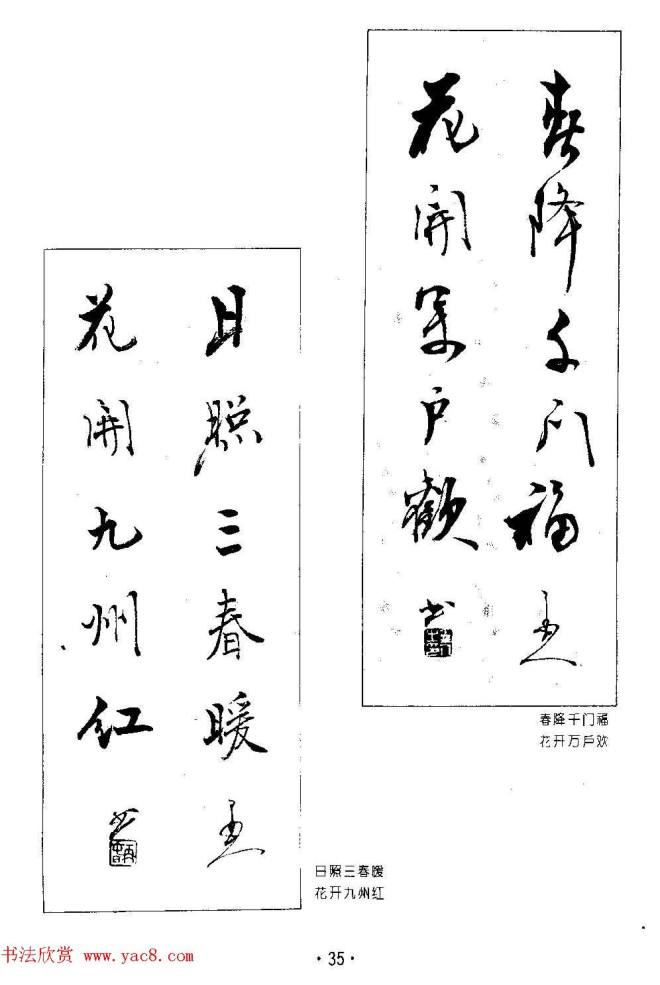 春降千门福
花開萬户歡
书
春降千门福
花开万户欢
日照三春暖
花開九州红
书
日照三春暖
花开九州红
书法欣赏 www.yac8.com
·35·